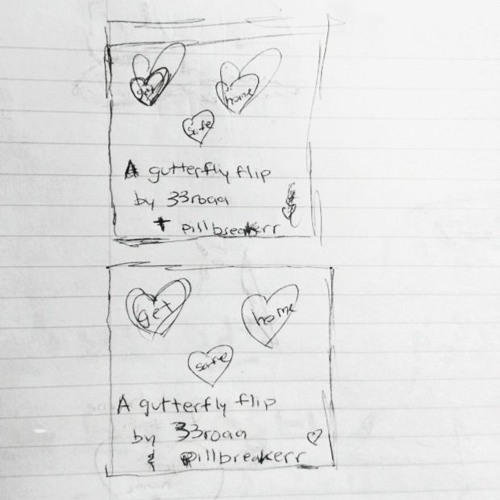 get home
safe
A gutterfly flip
by 33roaa
+ pillbreakerr
Get home
safe
A gutterfly flip
by 33roaa
& pillbreakerr